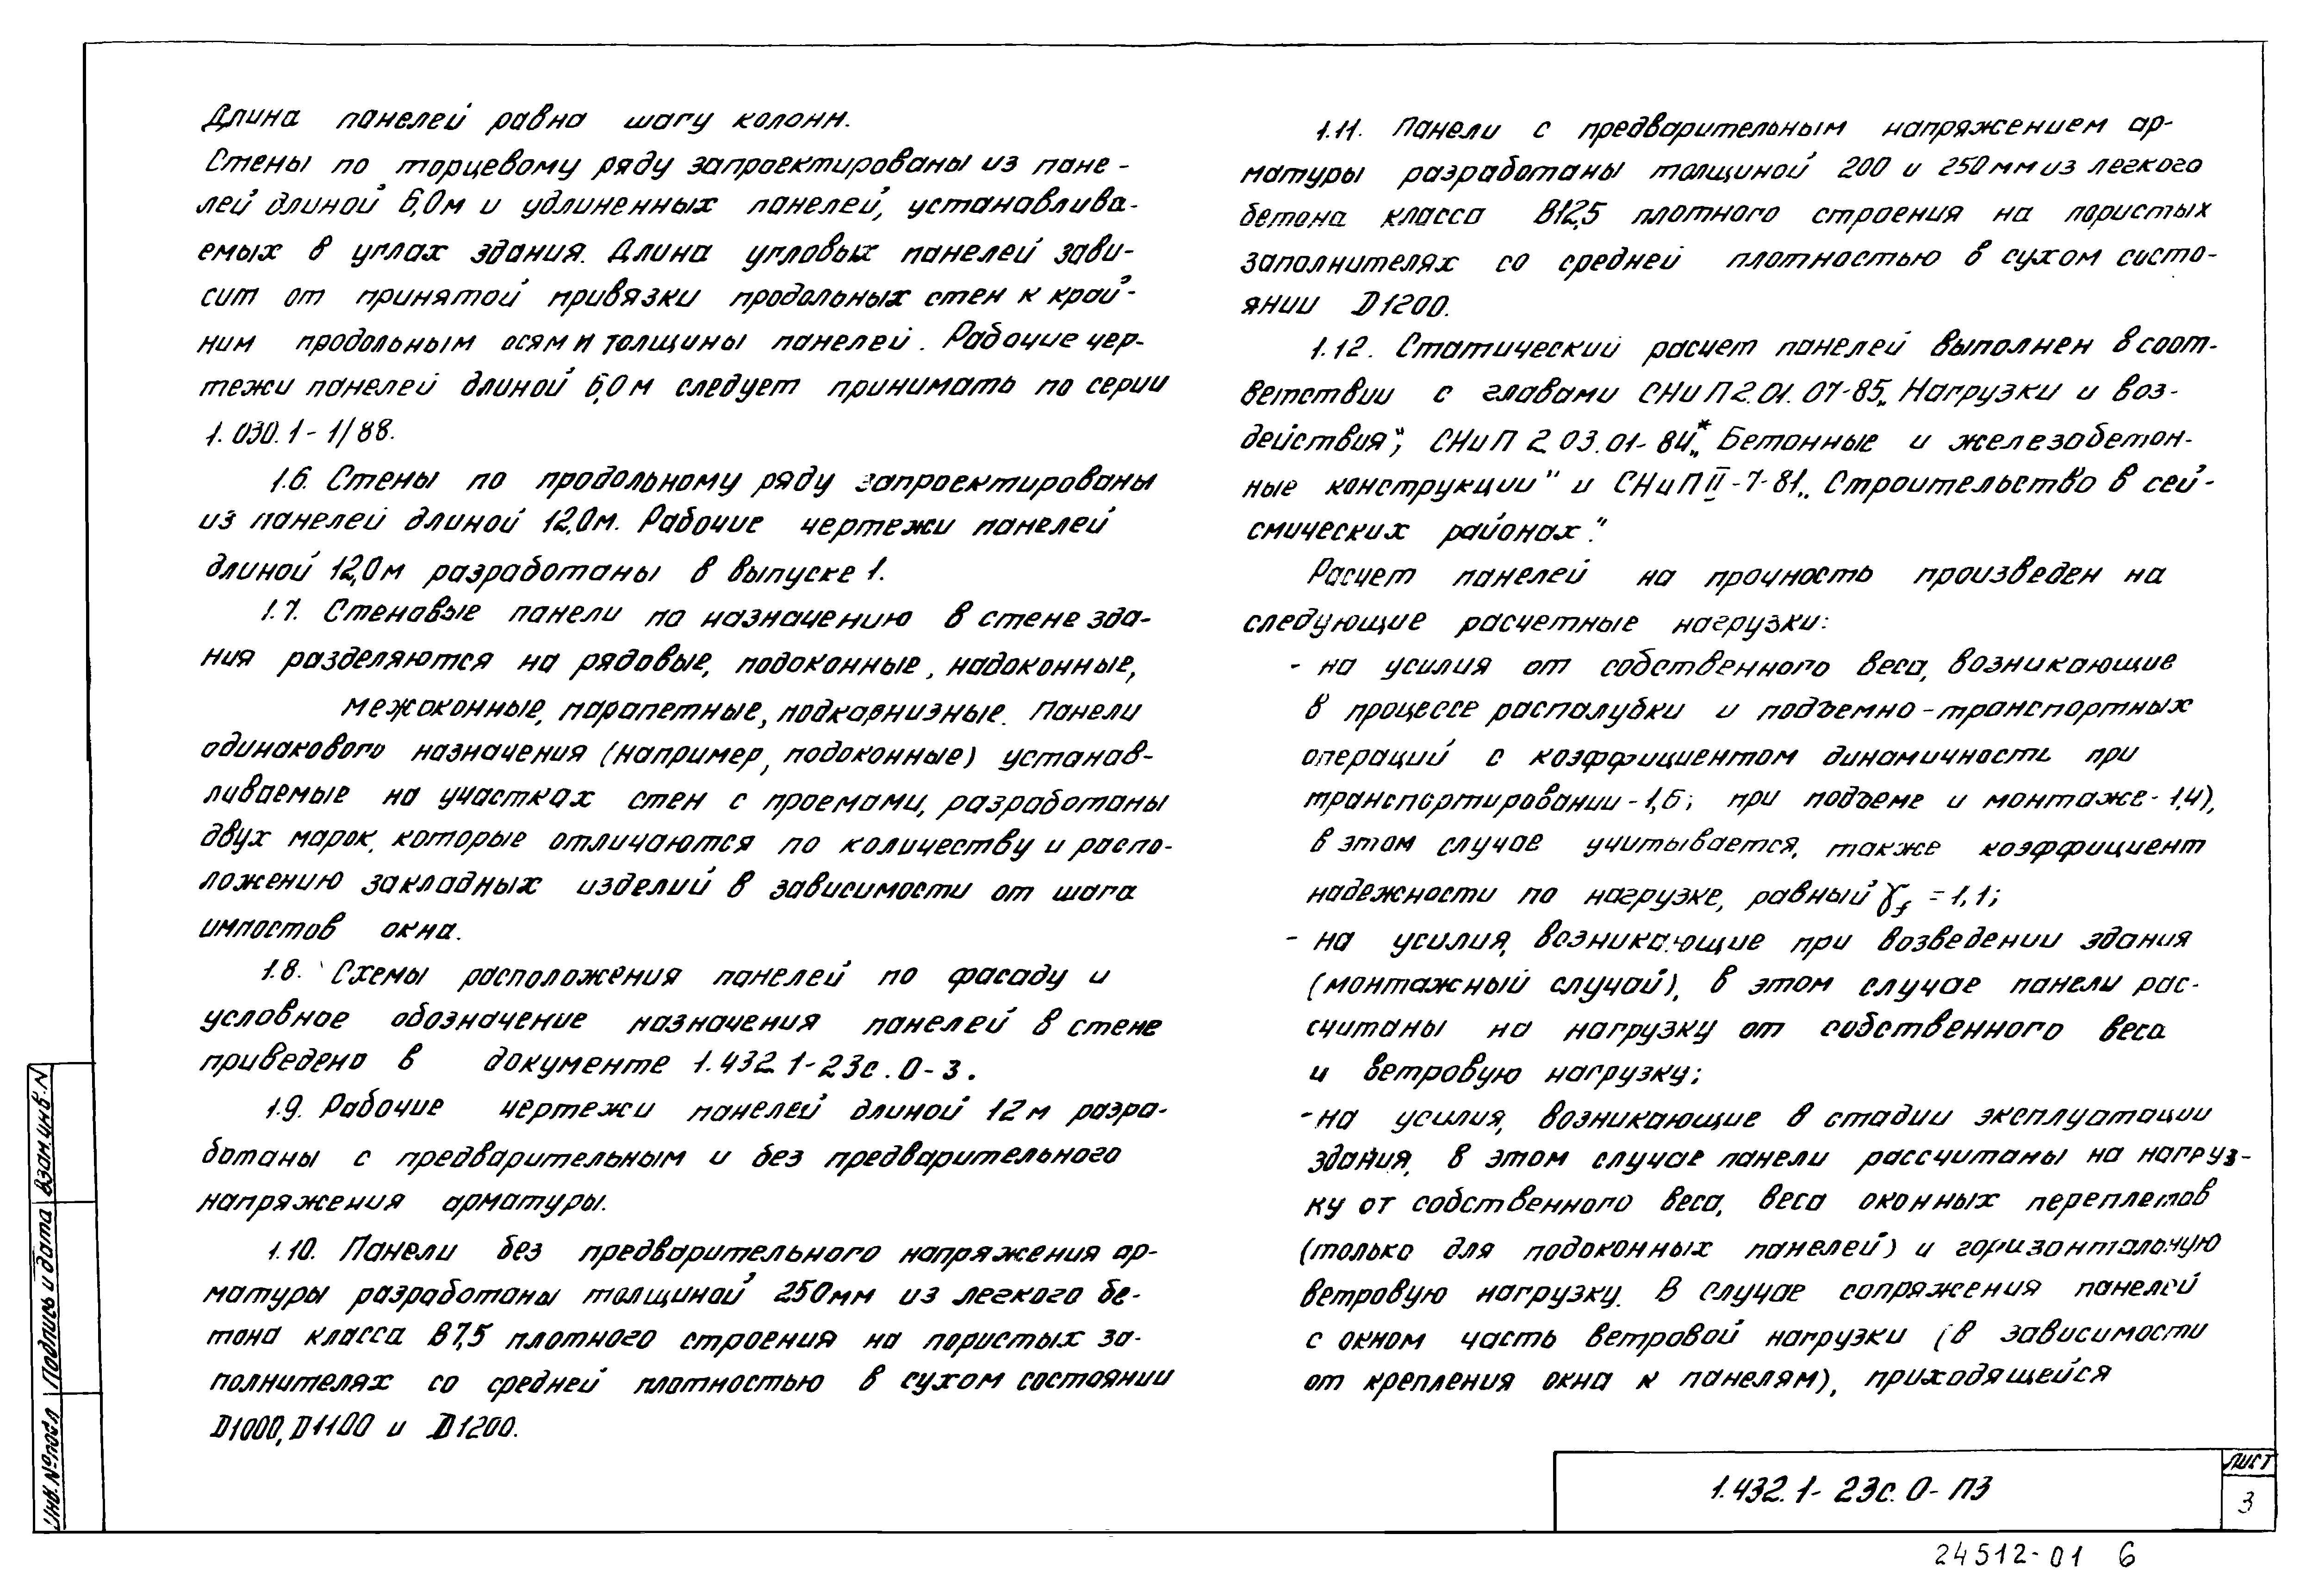 Длина панелей равна шагу колонн.
Стены по торцевому ряду запроектированы из пане-
лей длиной 6,0м и удлиненных панелей, устанавлива-
емых в углах здания. Длина угловых панелей зави-
сит от принятой привязки продольных стен к край-
ним продольным осям и толщины панелей. Рабочие чер-
тежи панелей длиной 6,0м следует принимать по серии
1.030.1-1/88.
1.6. Стены по продольному ряду запроектированы
из панелей длиной 12,0м. Рабочие чертежи панелей
длиной 12,0м разработаны в выпуске 1.
1.7. Стеновые панели по назначению в стене зда-
ния разделяются на рядовые, подоконные, надоконные,
межоконные, парапетные, подкарнизные. Панели
одинакового назначения (например, подоконные) устанав-
ливаемые на участках стен с проемами, разработаны
двух марок, которые отличаются по количеству и распо-
ложению закладных изделий в зависимости от шага
импостов окна.
1.8. Схемы расположения панелей по фасаду и
условное обозначение назначения панелей в стене
приведено в документе 1.432.1-23с.0-3.
1.9. Рабочие чертежи панелей длиной 12м разра-
ботаны с предварительным и без предварительного
напряжения арматуры.
1.10. Панели без предварительного напряжения ар-
матуры разработаны толщиной 250мм из легкого бе-
тона класса В7,5 плотного строения на пористых за-
полнителях со средней плотностью в сухом состоянии
D1000, D1100 и D1200.
1.11. Панели с предварительным напряжением ар-
матуры разработаны толщиной 200 и 250мм из легкого
бетона класса В12,5 плотного строения на пористых
заполнителях со средней плотностью в сухом систо-
янии D1200.
1.12. Статический расчет панелей выполнен в соот-
ветствии с главами СНиП 2.01.07-85 „Нагрузки и воз-
действия", СНиП 2.03.01-84* „Бетонные и железобетон-
ные конструкции" и СНиП II-7-81 „Строительство в сей-
смических районах."
Расчет панелей на прочность произведен на
следующие расчетные нагрузки:
- на усилия от собственного веса, возникающие
в процессе распалубки и подъемно-транспортных
операций с коэффициентом динамичность при
транспортировании-1,6; при подъеме и монтаже-1,4),
в этом случае учитывается, также коэффициент
надежности по нагрузке, равный γf = 1,1;
- на усилия, возникающие при возведении здания
(монтажный случай), в этом случае панели рас-
считаны на нагрузку от собственного веса
и ветровую нагрузку;
- на усилия, возникающие в стадии эксплуатации
здания, в этом случае панели рассчитаны на нагруз-
ку от собственного веса, веса оконных переплетов
(только для подоконных панелей) и горизонтальную
ветровую нагрузку. В случае сопряжения панелей
с окном часть ветровой нагрузки (в зависимости
от крепления окна к панелям), приходящейся
Взам.инв.N
Подпись и дата
Инв.№подл
1.432.1-23с.0-ПЗ
лист
3
24512-01 6